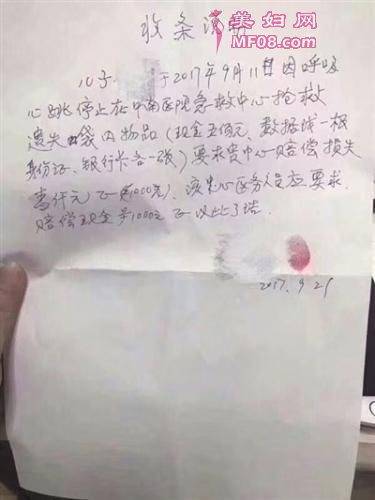 美妇网
MF08.com
收条
儿子 于2017年9月11日因呼吸
心跳停止在中南医院急救中心抢救
遗失袋内物品(现金五佰元、数据线一根
身份证、银行卡各一张)要求贵中心赔偿损失
壹仟元正(¥1000元)、该中心医务人员应要求
赔偿现金¥1000正 以此了结.
2017.9.21